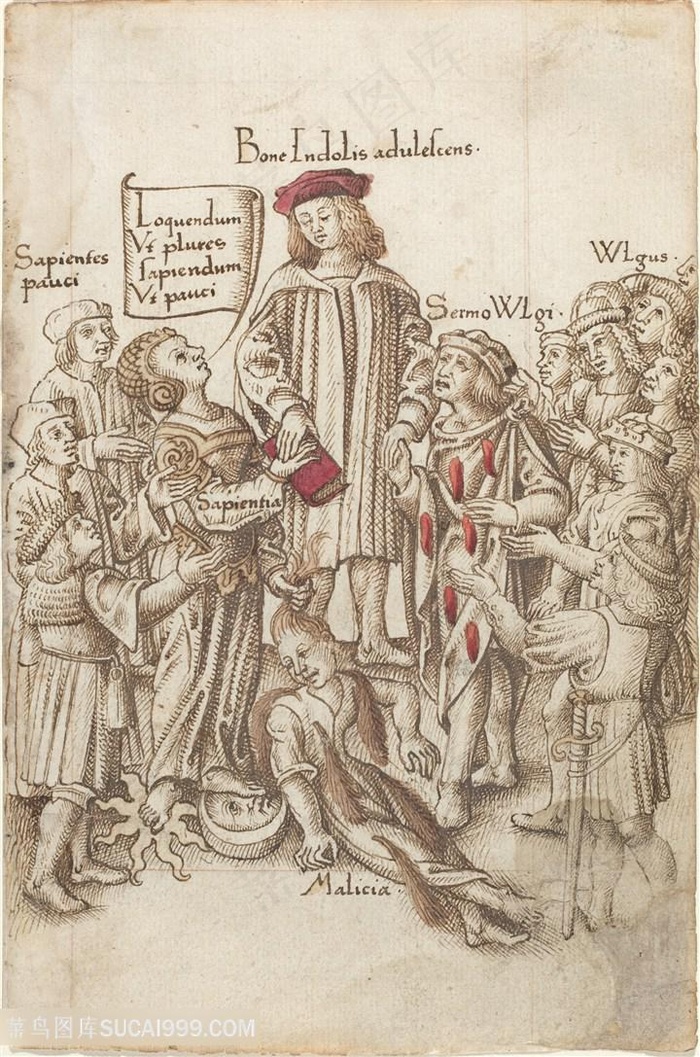 Bone Indolis adulescens.
Loquendum
Vt plures
sapiendum
Vt pauci
Sapientes
pauci
Wlgus.
Sermo Wlgi.
Sapientia
Malicia.
菜鸟图库SUCAI999.COM